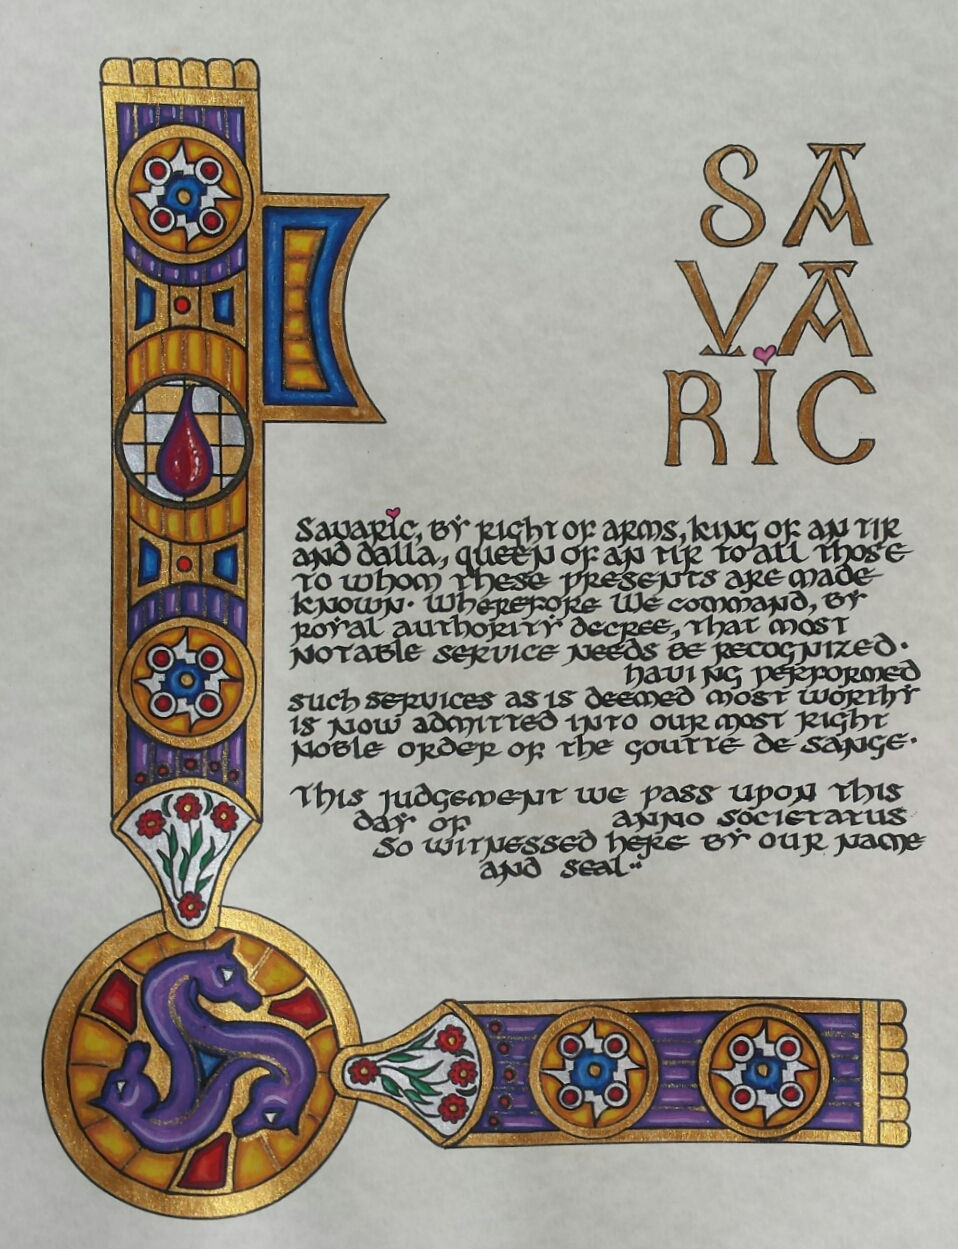 SA
VA
RIC
Savaric, by right of arms, king of An Tir
and Dalla, queen of An Tir to all those
to whom these presents are made
known. Wherefore we command, by
royal authority decree, that most
notable service needs be recognized.
having performed
such services as is deemed most worthy
is now admitted into our most right
noble order of the Goutte de Sange.
This judgement we pass upon this
day of anno societatus
so witnessed here by our name
and seal